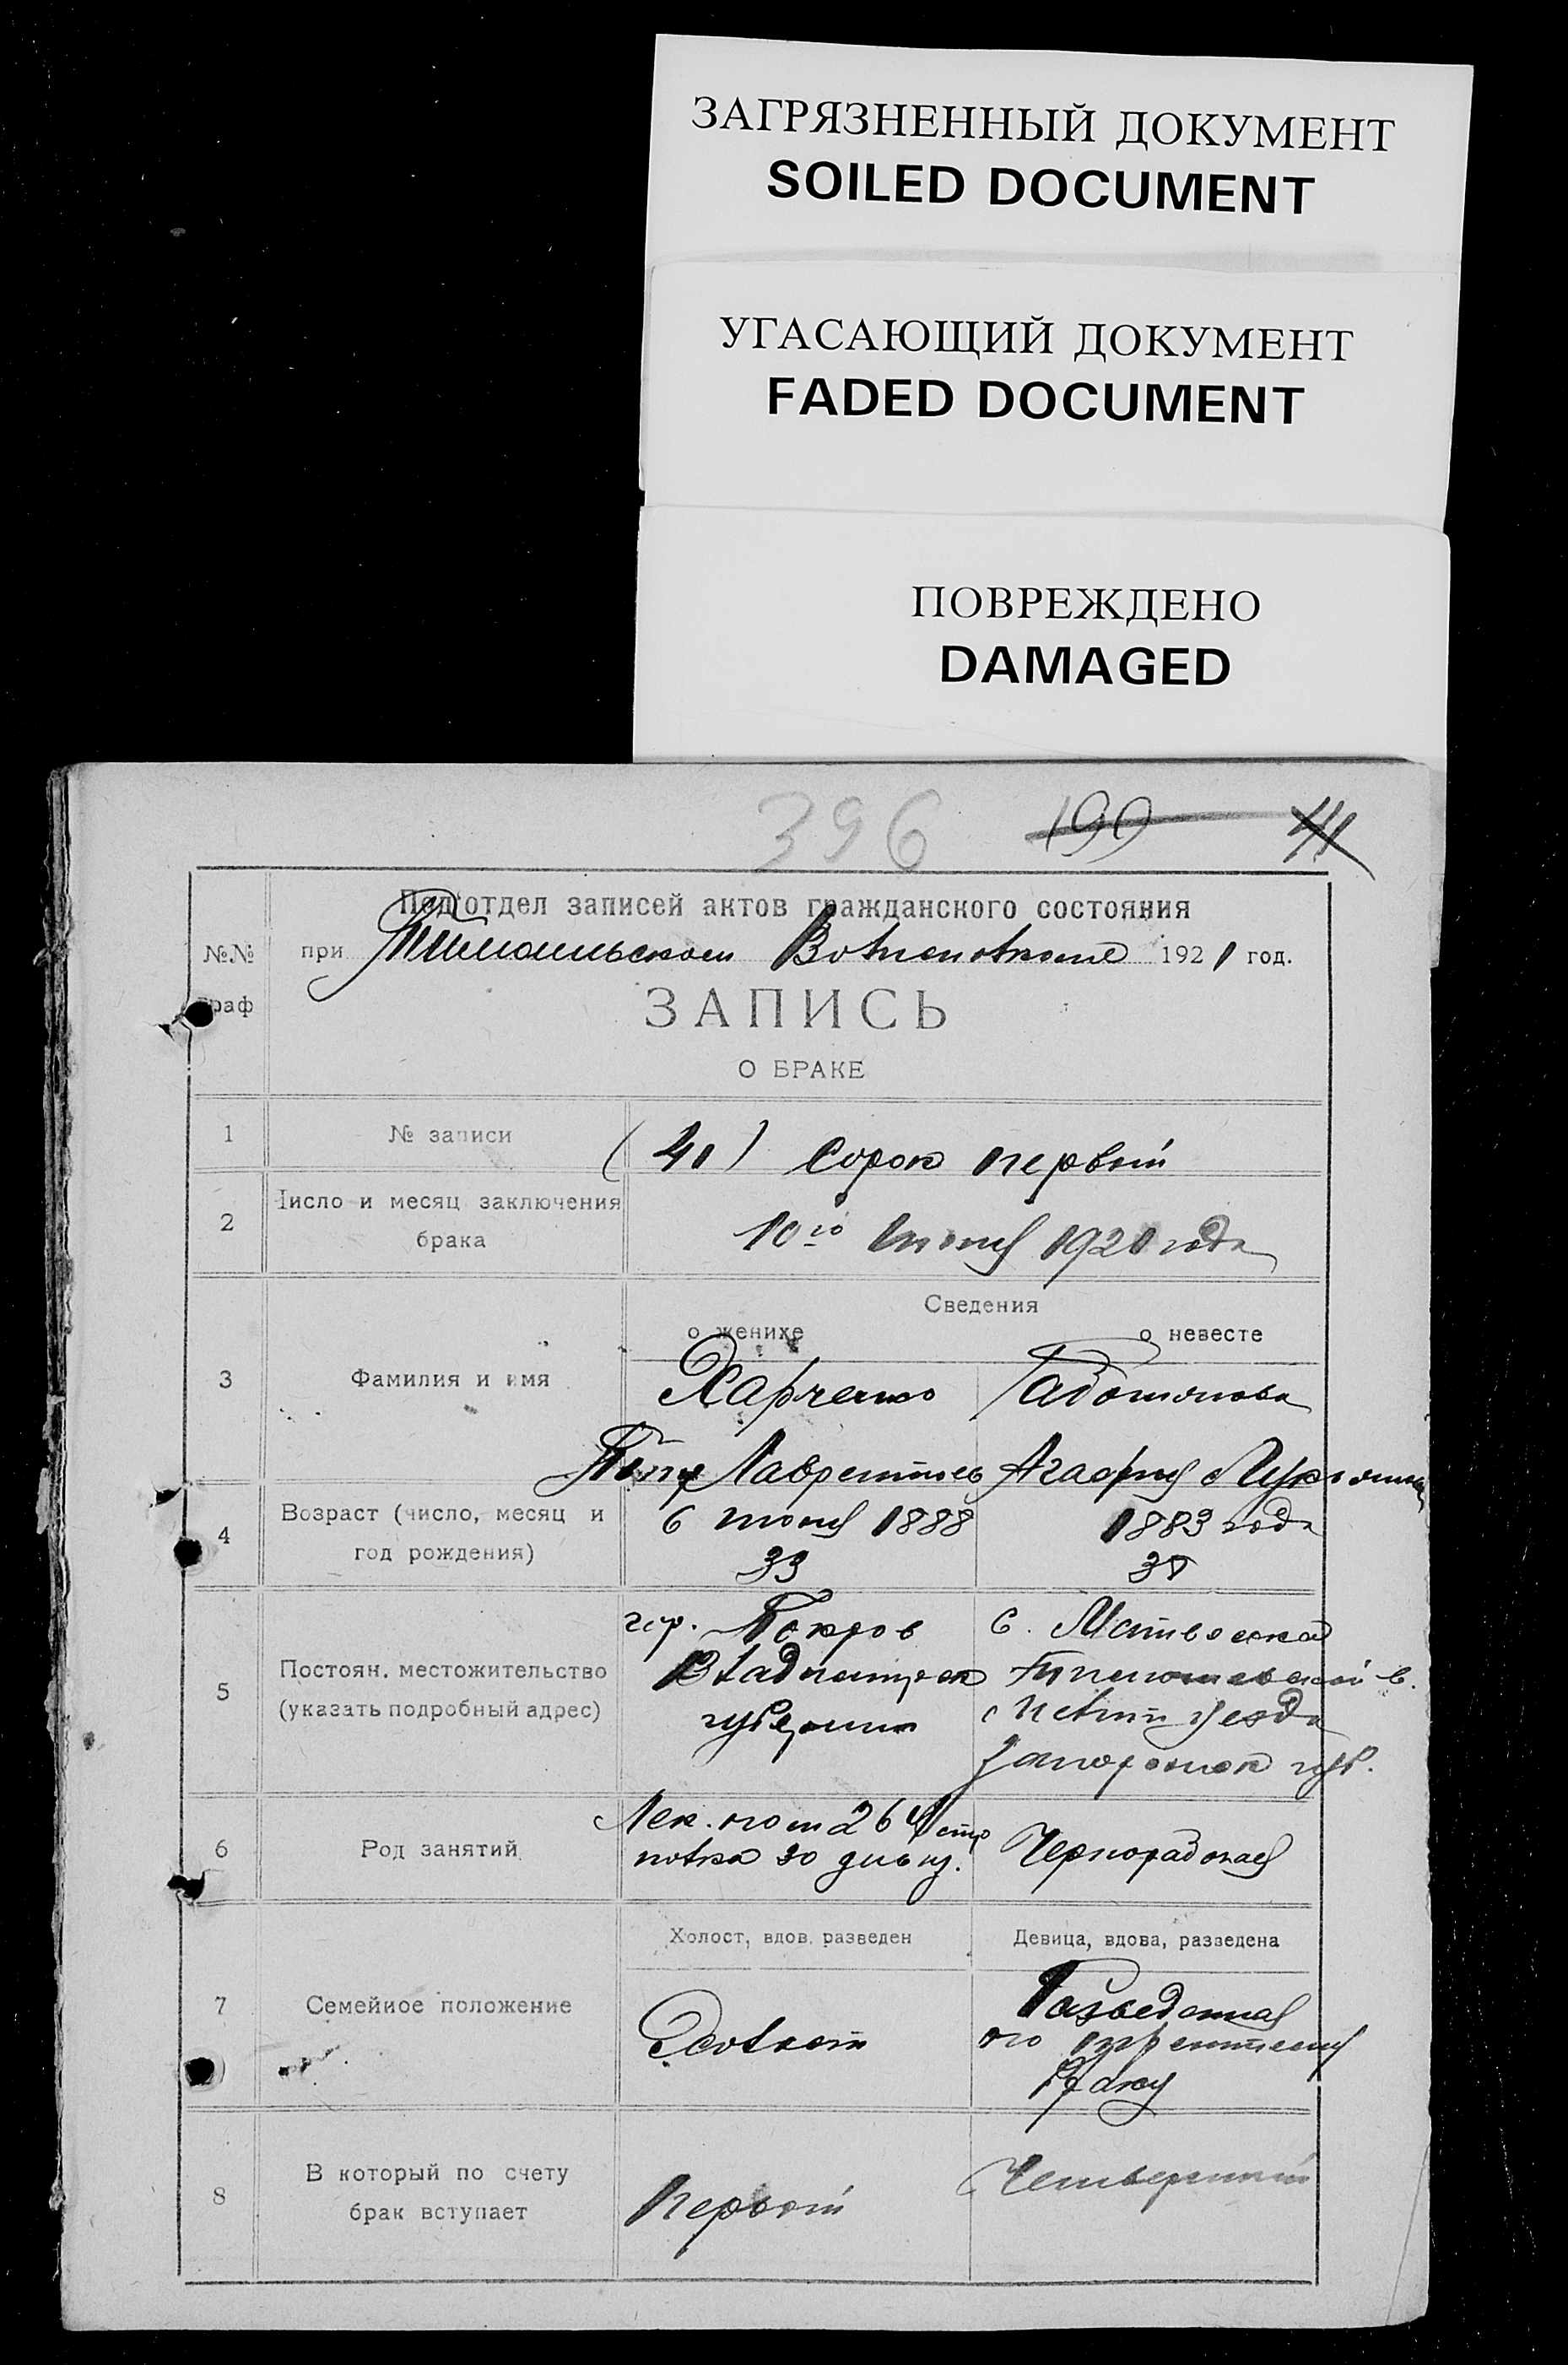 ЗАГРЯЗНЕННЫЙ ДОКУМЕНТ
SOILED DOCUMENT
УГАСАЮЩИЙ ДОКУМЕНТ
FADED DOCUMENT
ПОВРЕЖДЕНО
DAMAGED
396 199 41
Под'отдел записей актов гражданского состояния
№№ при 1921 год.
граф
ЗАПИСЬ
О БРАКЕ
1 № записи (41) Сорок первый
2 Число и месяц заключения
брака
10го 1921 года
Сведения
о женихе о невесте
3 Фамилия и имя
Харченко
Лаврентиев Агафия
4 Возраст (число, месяц и
год рождения)
6 1888 1883 года
33 38
5 Постоян. местожительство
(указать подробный адрес)
гор. Покров с.
губернии уезда
губ.
6 Род занятий
Лек. пом 264
полка 30 дивиз. Чернорабочая
Холост, вдов, разведен Девица, вдова, разведена
7 Семейное положение
Холост Разведенная
по
браку
8 В который по счету
брак вступает
Первый Четвертый